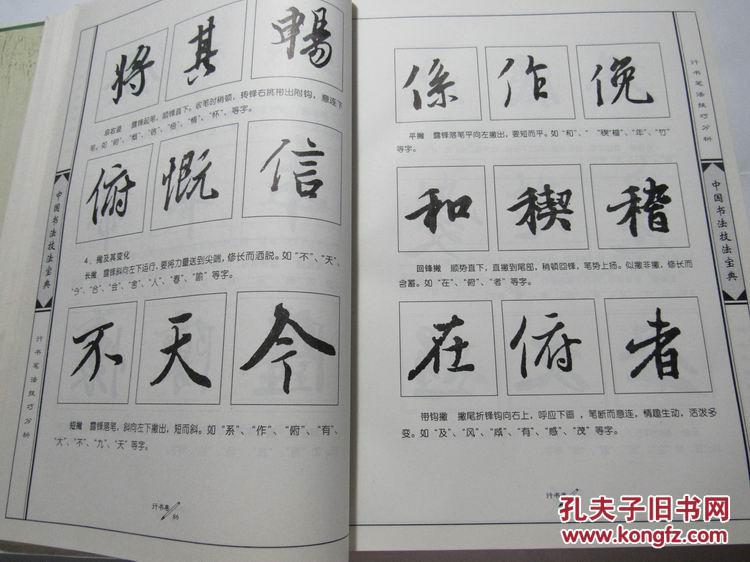 将其暢
启右竖 露锋起笔，顺锋直下。收笔时稍顿，转锋右挑带出附钩，意连下
笔。如“俯”、“慨”、“信”、“极”、“楷”、“怀”、等字。
俯慨信
4、撇及其变化
长撇 露锋斜向左下运行，要将力量送到尖端，修长而洒脱。如“不”、“天”、
“今”、“合”、“会”、“舍”、“人”、“春”、“喻”等字。
不天今
短撇 露锋落笔，斜向左下撇出，短而斜。如“系”、“作”、“俯”、“有”、
“大”、“不”、“九”、“天”等字。
行书卷
86
中国书法技法宝典
行书笔法技巧分析
係作俛
平撇 露锋落笔平向左撇出，要短而平。如“和”、“稧”、“稽”、“年”、“竹”
等字。
和稧稽
回锋撇 顺势直下，直撇到尾部，稍顿回锋，笔势上扬。似撇非撇，修长而
含蓄。如“在”、“俯”、“者”等字。
在俯者
带钩撇 撇尾折锋钩向右上，呼应下画，笔断而意连，情趣生动，活泼多
变。如“及”、“风”、“咸”、“有”、“感”、“茂”等字。
行书卷
行书笔法技巧分析
中国书法技法宝典
孔夫子旧书网
www.kongfz.com